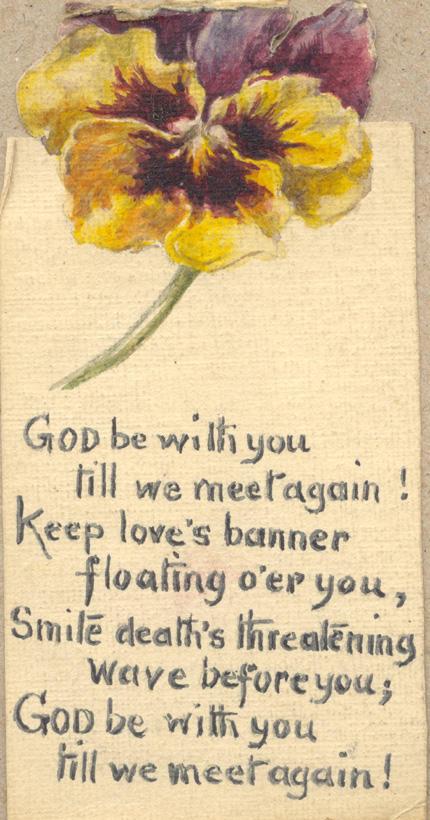 GOD be with you
till we meet again !
Keep love's banner
floating o'er you,
Smite death's threatening
wave before you;
GOD be with you
till we meet again!